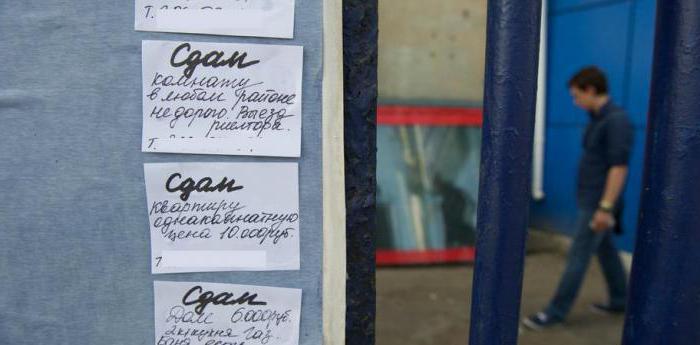 Т.
Сдам
комнату
в любом районе
недорого. Выезд
риелтора.
Т.
Сдам
квартиру
однакомнатную
цена 10.000руб.
Т
Сдам
Дом 6000руб.
кухня газ.
баня есть